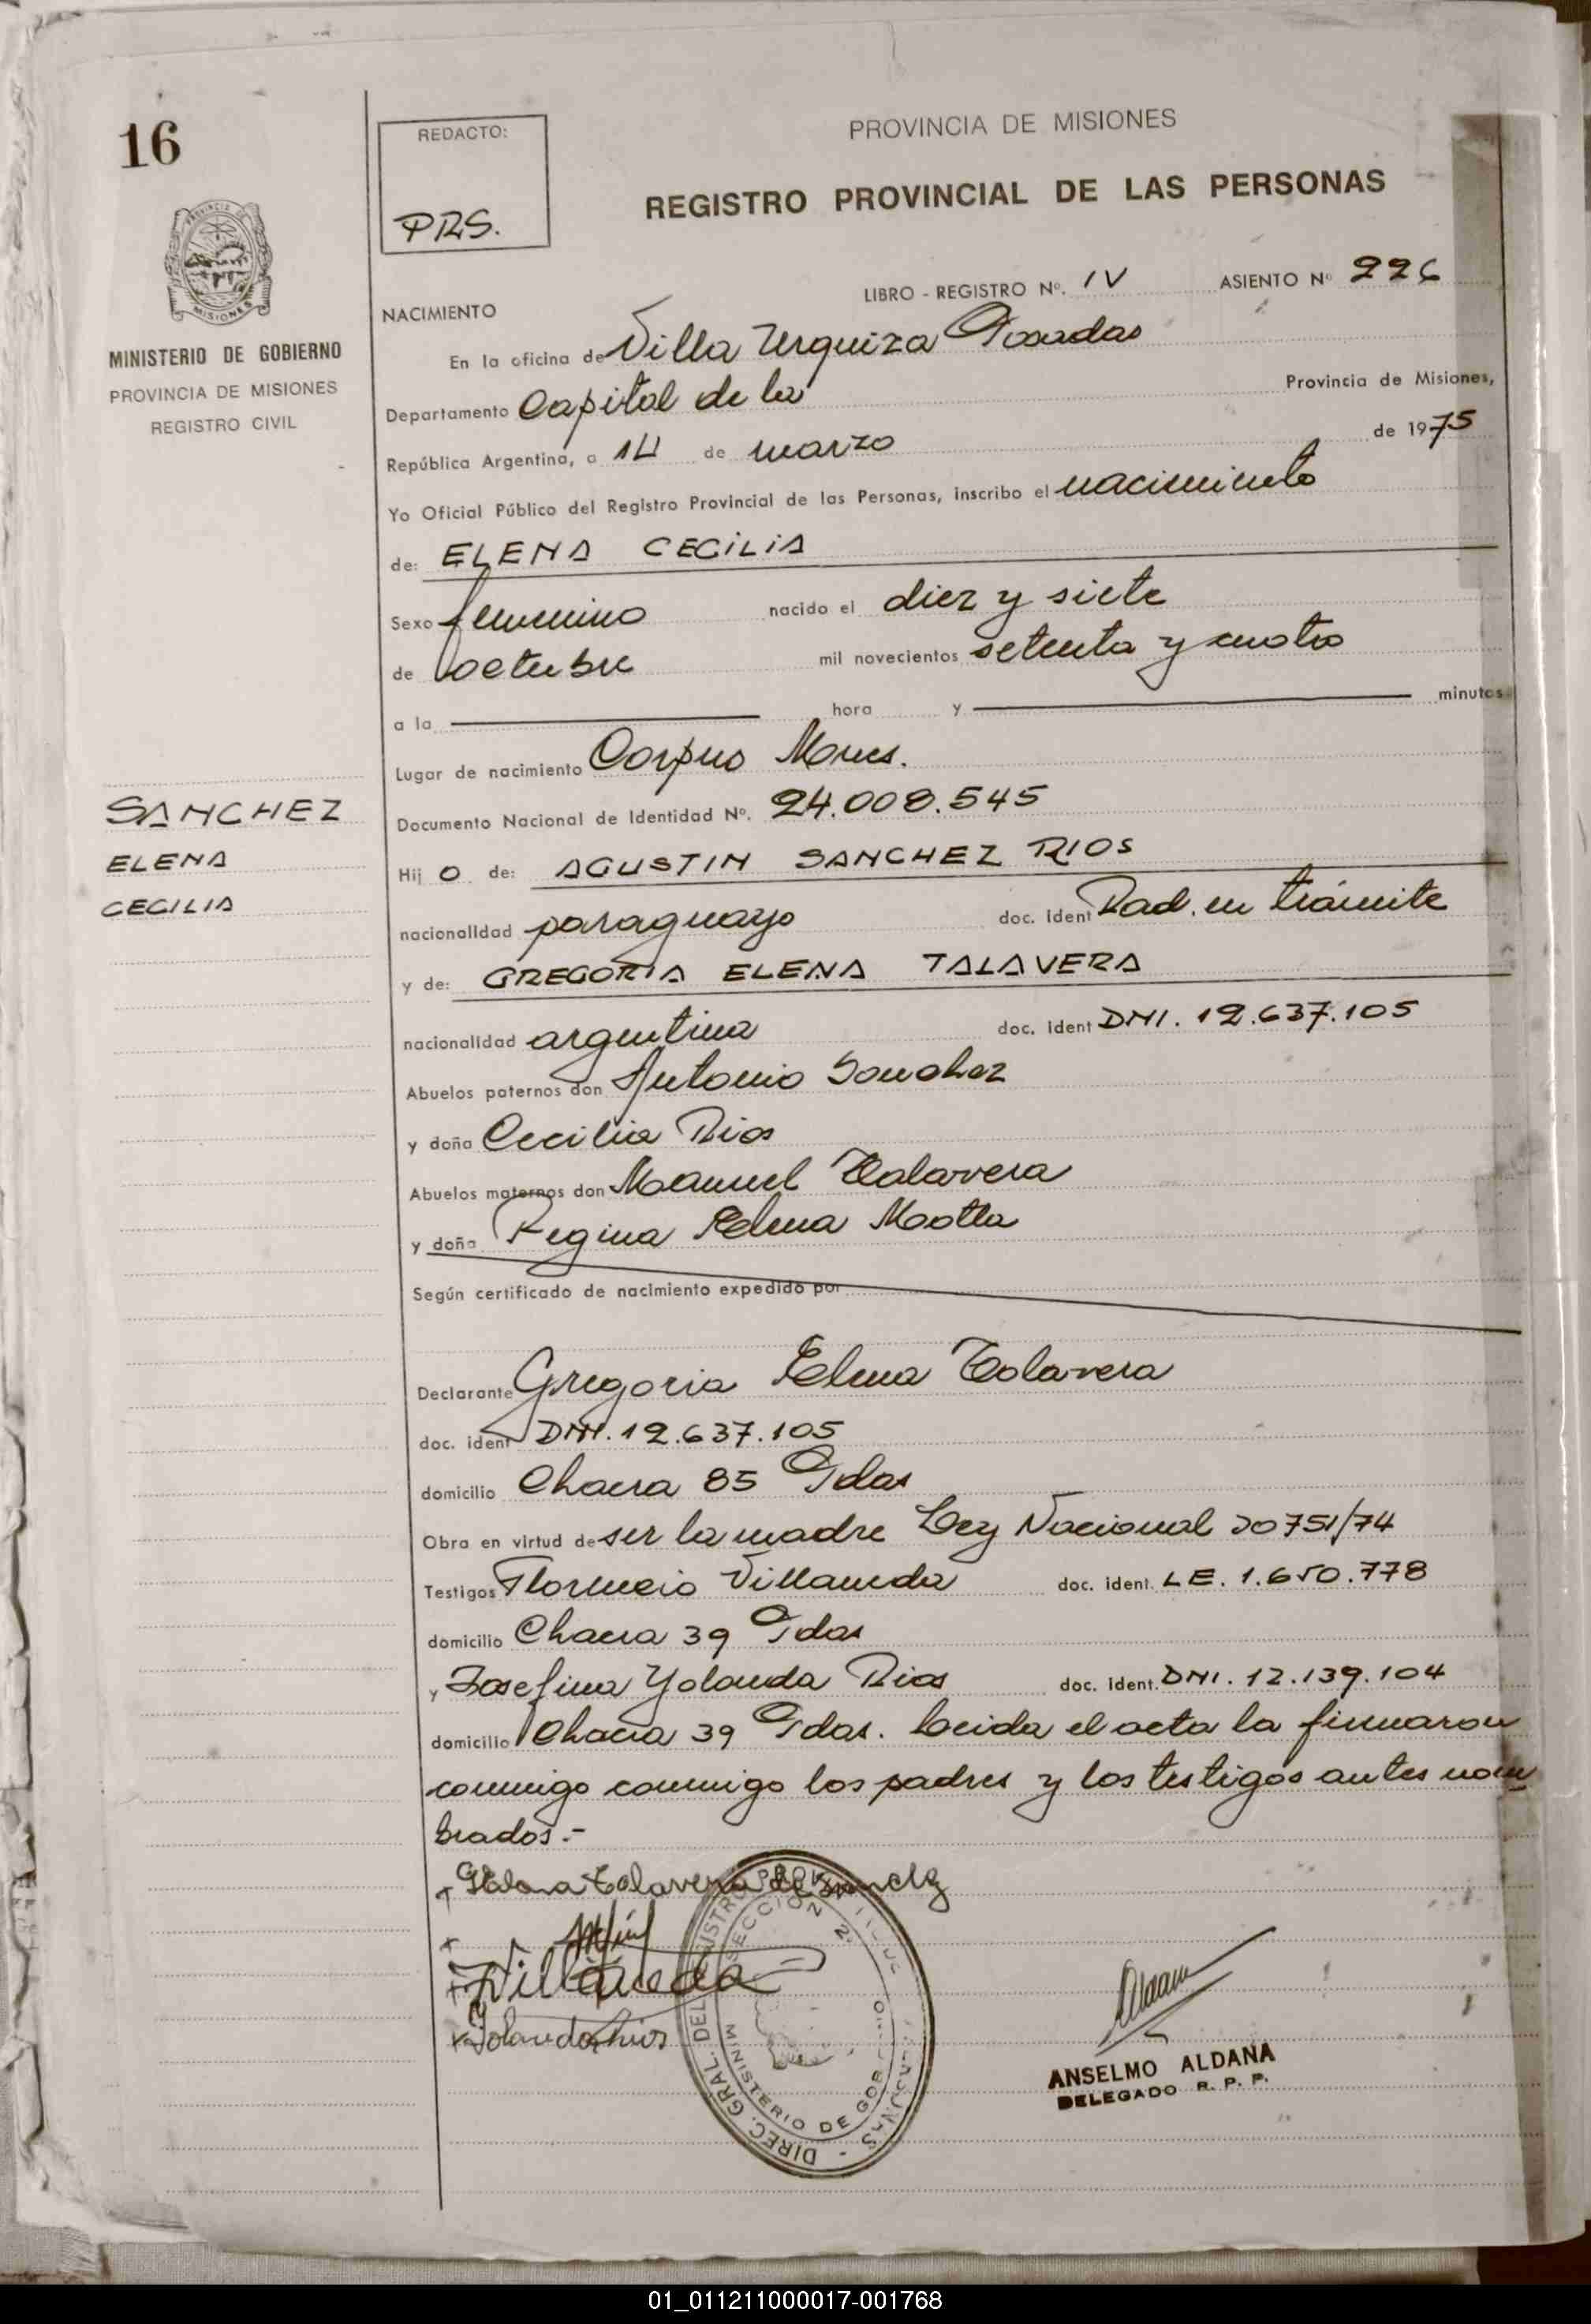 16
MINISTERIO DE GOBIERNO
PROVINCIA DE MISIONES
REGISTRO CIVIL
SANCHEZ
ELENA
CECILIA
REDACTO:
PRS.
PROVINCIA DE MISIONES
REGISTRO PROVINCIAL DE LAS PERSONAS
LIBRO - REGISTRO Nº. IV ASIENTO Nº 226
NACIMIENTO
En la oficina de Villa Urquiza Posadas
Departamento Capital de la Provincia de Misiones,
República Argentina, a 14 de marzo de 1975
Yo Oficial Público del Registro Provincial de las Personas, inscribo el nacimiento
de: ELENA CECILIA
Sexo femenino nacido el diez y siete
de octubre mil novecientos setenta y cuatro
a la hora y minutos
Lugar de nacimiento Corpus Mnes.
Documento Nacional de Identidad Nº. 24.008.545
Hij o de: AGUSTIN SANCHEZ RIOS
nacionalidad paraguayo doc. ident Rad. en trámite
y de: GREGORIA ELENA TALAVERA
nacionalidad argentina doc. ident DNI. 12.637.105
Abuelos paternos don Antonio Sanchez
y doña Cecilia Rios
Abuelos maternos don Manuel Talavera
y doña Regina Elena Motta
Según certificado de nacimiento expedido por
Declarante Gregoria Elena Talavera
doc. ident DNI. 12.637.105
domicilio Chacra 85 Pdas
Obra en virtud de ser la madre Ley Nacional 20751/74
Testigos Florencio Villanueda doc. ident. LE. 1.650.778
domicilio Chacra 39 Pdas
y Josefina Yolanda Rios doc. ident. DNI. 12.139.104
domicilio Chacra 39 Pdas. Leida el acta la firmaron
conmigo conmigo los padres y los testigos antes nom
brados.-
Talavera de
Villanueda
Yolanda Rios
DIREC. GRAL. DEL
SECCION 2
MINISTERIO DE GOBIERNO
ANSELMO ALDANA
DELEGADO R. P. P.
01_011211000017-001768